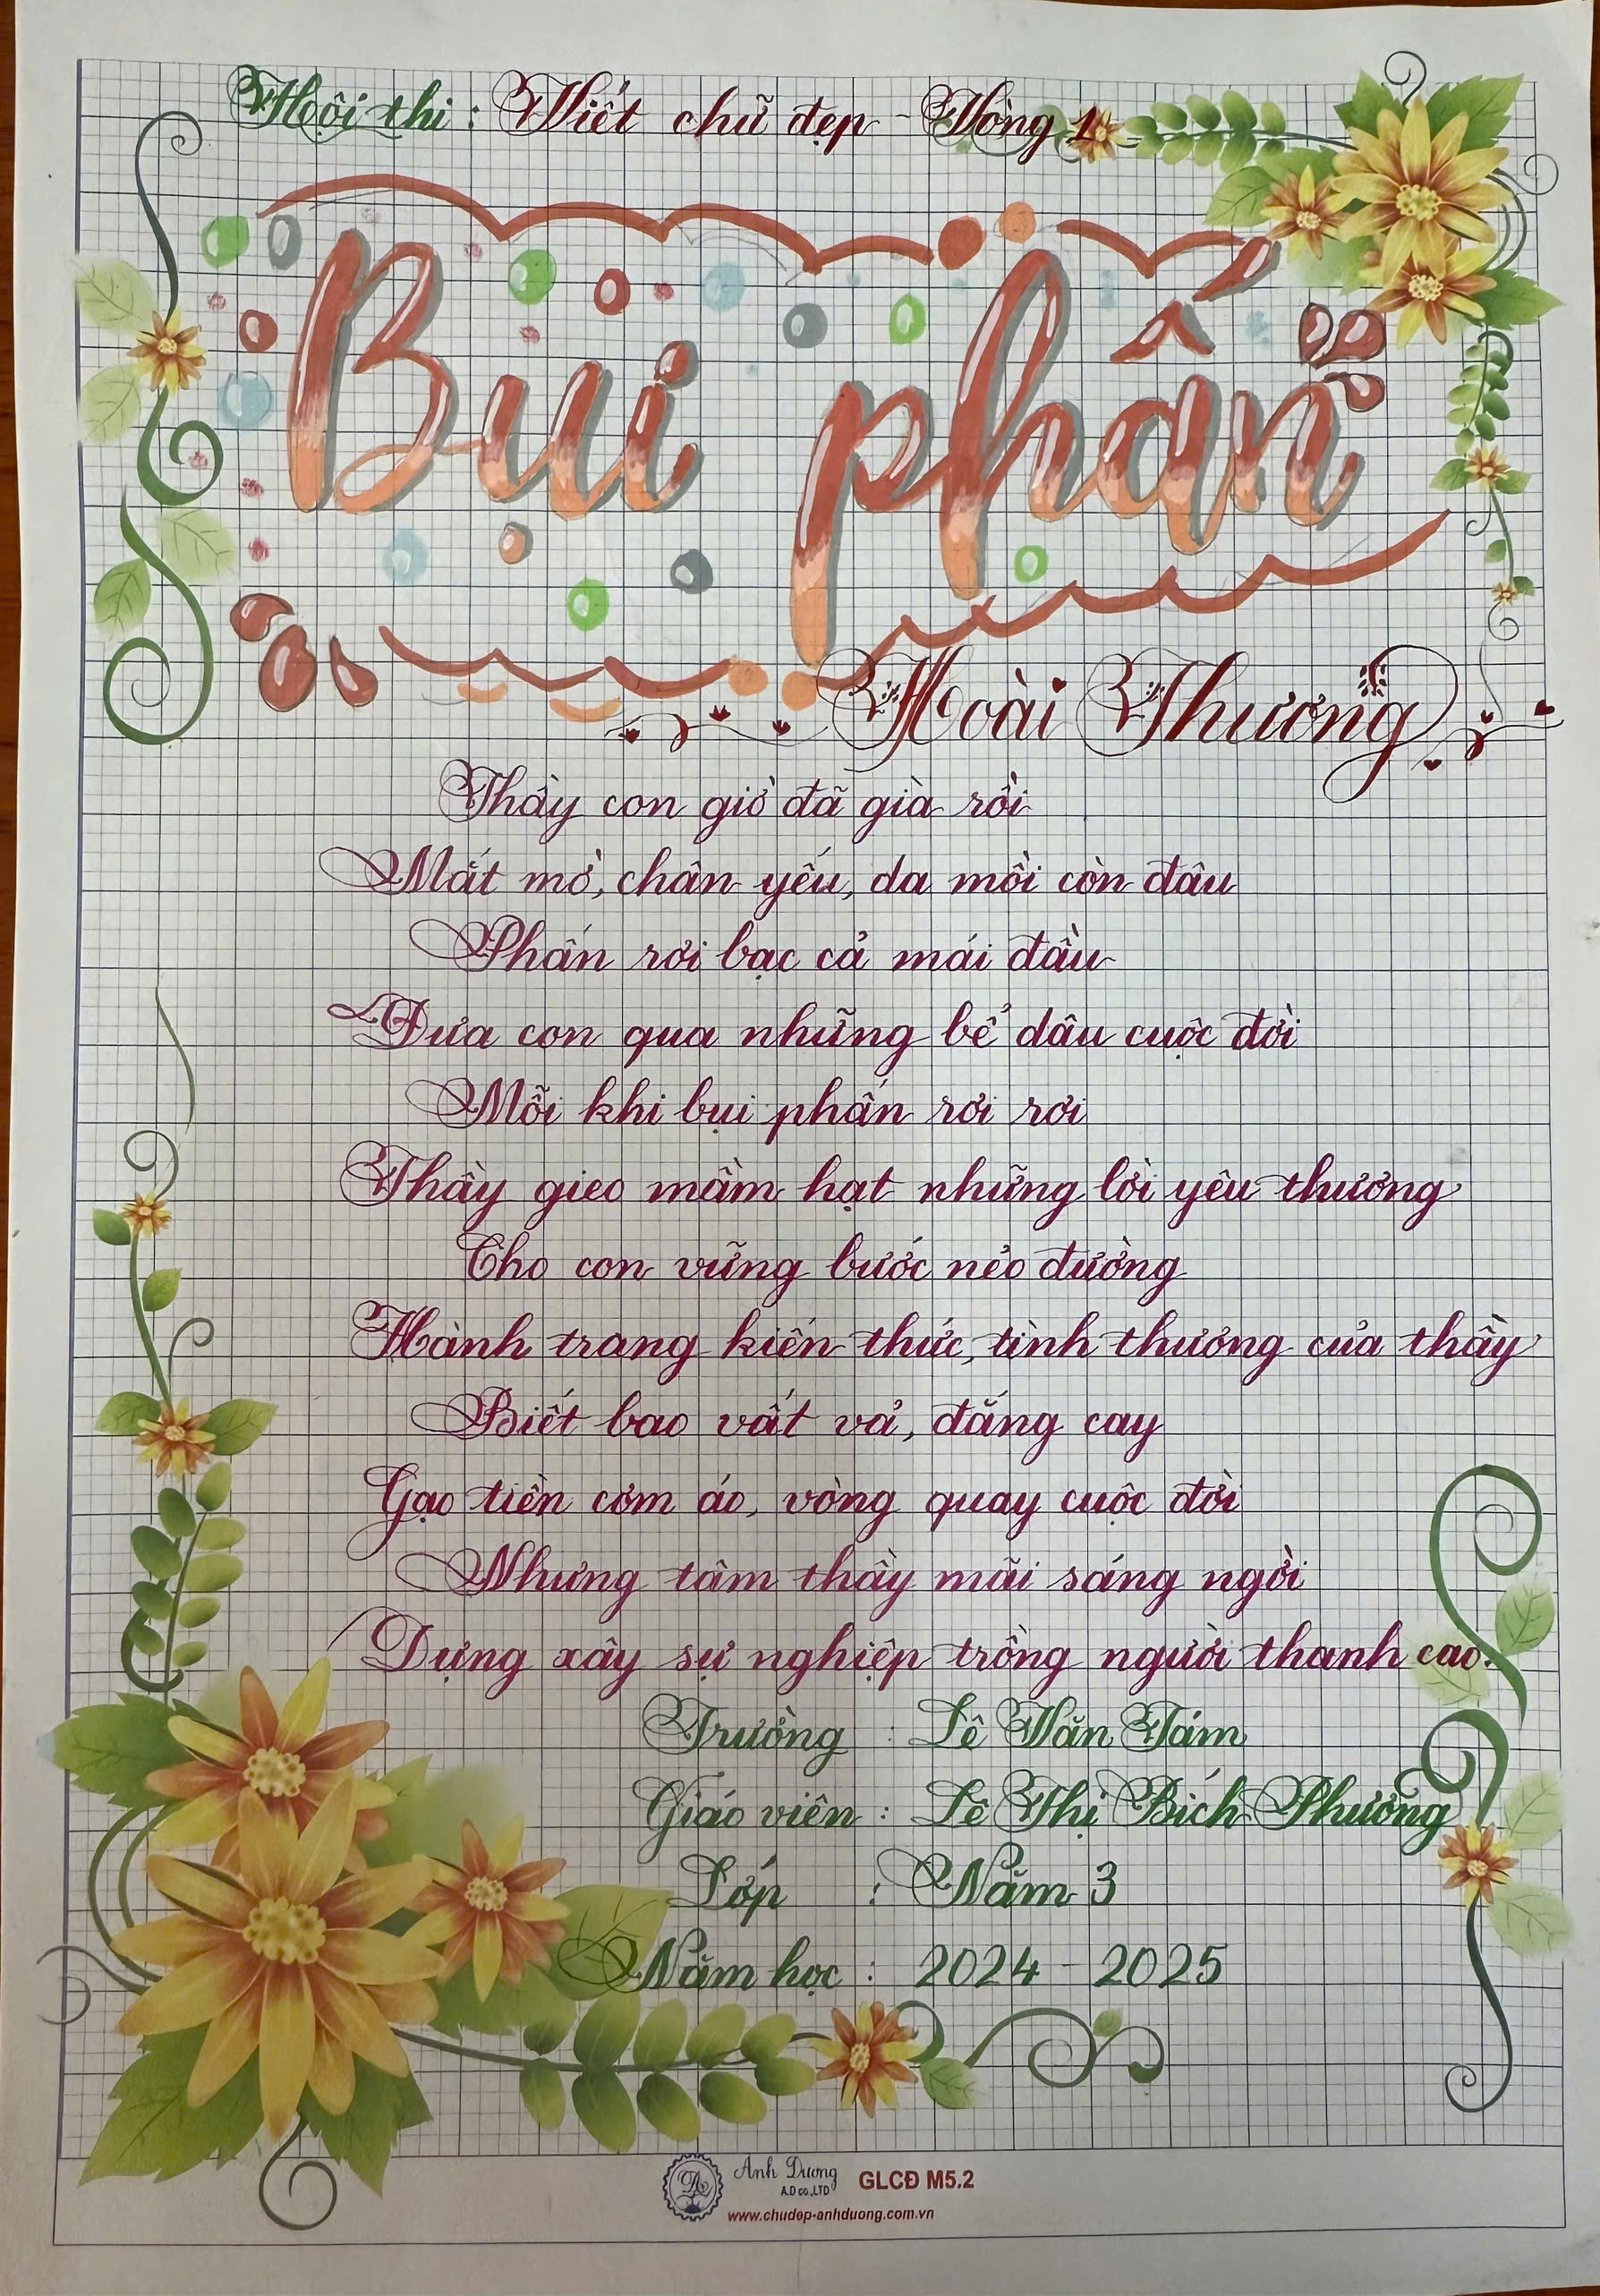 Hội thi : Viết chữ đẹp - Vòng 1
Bụi phấn
Hoài Thương
Thầy con giờ đã già rồi
Mắt mờ, chân yếu, da mồi còn đâu
Phấn rơi bạc cả mái đầu
Đưa con qua những bể dâu cuộc đời
Mỗi khi bụi phấn rơi rơi
Thầy gieo mầm hạt những lời yêu thương
Cho con vững bước nẻo đường
Hành trang kiến thức, tình thương của thầy
Biết bao vất vả, đắng cay
Gạo tiền cơm áo, vòng quay cuộc đời
Nhưng tâm thầy mãi sáng ngời
Dựng xây sự nghiệp trồng người thanh cao.
Trường : Lê Văn Tám
Giáo viên : Lê Thị Bích Phượng
Lớp : Năm 3
Năm học : 2024 - 2025
Anh Dương GLCĐ M5.2
A.D co.,LTD
www.chudep-anhduong.com.vn